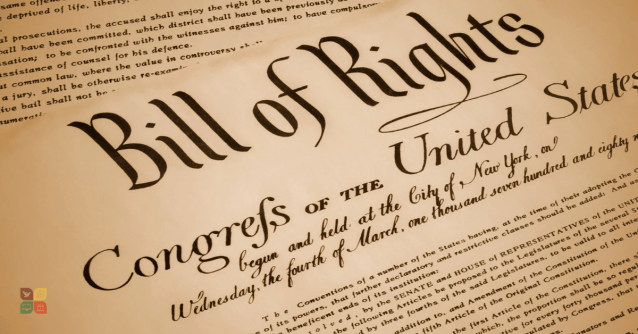 same
deprived of life, liberty,
prosecutions, the accused shall enjoy the right to a
have been committed, which district shall have been previously
to be confronted with the witnesses against him; to have
assistance of counsel for his defence.
common law, where the value in controversy
a jury, shall be otherwise
bail shall not be
Bill of Rights
Congreſs OF THE United States
begun and held at the City of New York, on
Wednesday, the fourth of March, one thousand seven hundred and eighty
The Conventions of a number of the States having, at the time of their adopting the
of its powers, that further declaratory and restrictive clauses should be added: And
beneficent ends of its institution:
by the SENATE and HOUSE of REPRESENTATIVES of the
following Articles be proposed to the Legislatures of the several
by three fourths of the said Legislatures, to be valid to all
addition to, and Amendment of the Constitution of
Article of the Original Constitution.
first Article of the Constitution, there